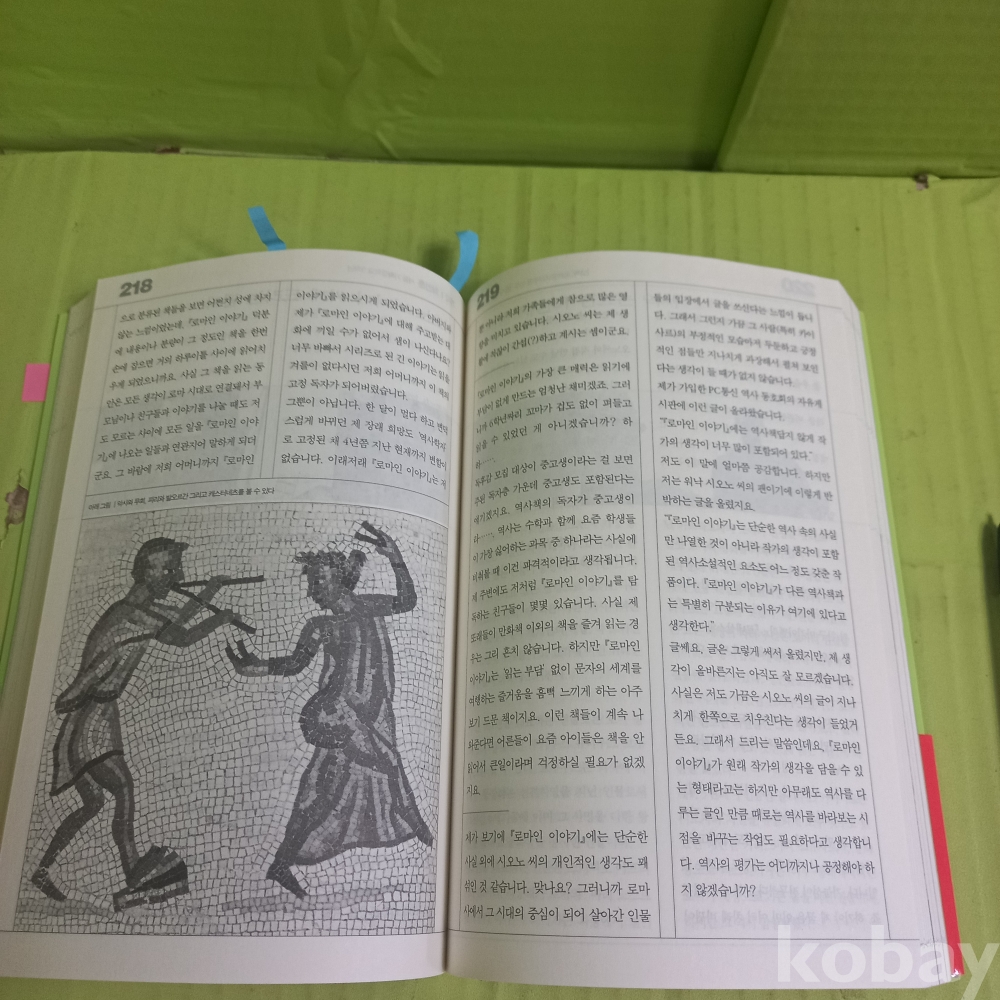 218
으로 분류된 책들을 보면 어쩐지 성에 차지
않는 느낌이었는데, 『로마인 이야기』 덕분
에 내용이나 분량이 그 정도인 책을 한번
손에 잡으면 거의 하루이틀 사이에 읽어치
우게 되었으니까요. 사실 그 책을 읽는 동
안은 모든 생각이 로마 시대로 연결돼서 부
모님이나 친구들과 이야기를 나눌 때도 저
도 모르는 사이에 모든 일을 『로마인 이야
기』에 나오는 일들과 연관지어 말하게 되더
군요. 그 바람에 저희 어머니까지 『로마인
이야기』를 읽으시게 되었습니다. 아버지와
제가 『로마인 이야기』에 대해 주고받는 대
화에 끼일 수가 없어서 샘이 나신다나요?
너무 바빠서 시리즈로 된 긴 이야기는 읽을
겨를이 없다시던 저희 어머니까지 이 책의
고정 독자가 되어버렸습니다.
그뿐이 아닙니다. 한 달이 멀다 하고 변덕
스럽게 바뀌던 제 장래 희망도 '역사학자'
로 고정된 채 4년쯤 지난 현재까지 변함이
없습니다. 이래저래 『로마인 이야기』는 저
아래 그림 / 악사와 무희. 피리와 발오르간 그리고 캐스터네츠를 볼 수 있다
219
뿐 아니라 저희 가족들에게 참으로 많은 영
향을 미치고 있습니다. 시오노 씨는 제 생
활에 적잖이 간섭(?)하고 계시는 셈이군요.
『로마인 이야기』의 가장 큰 매력은 읽기에
부담이 없게 만드는 엄청난 재미겠죠. 그러
니까 6학년짜리 꼬마가 겁도 없이 펴들고
읽을 수 있었던 게 아니겠습니까? 하
하──.
독후감 모집 대상이 중고생이라는 걸 보면
주된 독자층 가운데 중고생도 포함된다는
얘기겠지요. 역사책의 독자가 중고생이
라──, 역사는 수학과 함께 요즘 학생들
이 가장 싫어하는 과목 중 하나라는 사실에
비춰볼 때 이건 파격적이라고 생각됩니다.
제 주변에도 저처럼 『로마인 이야기』를 탐
독하는 친구들이 몇몇 있습니다. 사실 제
또래들이 만화책 이외의 책을 즐겨 읽는 경
우는 그리 흔치 않습니다. 하지만 『로마인
이야기』는 '읽는 부담' 없이 문자의 세계를
여행하는 즐거움을 흠뻑 느끼게 하는 아주
보기 드문 책이지요. 이런 책들이 계속 나
와준다면 어른들이 요즘 아이들은 책을 안
읽어서 큰일이라며 걱정하실 필요가 없겠
지요.
제가 보기에 『로마인 이야기』에는 단순한
사실 외에 시오노 씨의 개인적인 생각도 꽤
섞인 것 같습니다. 맞나요? 그러니까 로마
사에서 그 시대의 중심이 되어 살아간 인물
들의 입장에서 글을 쓰신다는 느낌이 듭니
다. 그래서 그런지 가끔 그 사람(특히 카이
사르)의 부정적인 모습마저 두둔하고 긍정
적인 점들만 지나치게 과장해서 펼쳐 보인
다는 생각이 들 때가 없지 않습니다.
제가 가입한 PC통신 역사 동호회의 자유게
시판에 이런 글이 올라왔습니다.
"『로마인 이야기』에는 역사책답지 않게 작
가의 생각이 너무 많이 포함되어 있다."
저도 이 말에 얼마쯤 공감합니다. 하지만
저는 워낙 시오노 씨의 팬이기에 이렇게 반
박하는 글을 올렸지요.
"『로마인 이야기』는 단순한 역사 속의 사실
만 나열한 것이 아니라 작가의 생각이 포함
된 역사소설적인 요소도 어느 정도 갖춘 작
품이다. 『로마인 이야기』가 다른 역사책과
는 특별히 구분되는 이유가 여기에 있다고
생각한다."
글쎄요, 글은 그렇게 써서 올렸지만, 제 생
각이 올바른지는 아직도 잘 모르겠습니다.
사실은 저도 가끔은 시오노 씨의 글이 지나
치게 한쪽으로 치우친다는 생각이 들었거
든요. 그래서 드리는 말씀인데요, 『로마인
이야기』가 원래 작가의 생각을 담을 수 있
는 형태라고는 하지만 아무래도 역사를 다
루는 글인 만큼 때로는 역사를 바라보는 시
점을 바꾸는 작업도 필요하다고 생각합니
다. 역사의 평가는 어디까지나 공정해야 하
지 않겠습니까?
kobay